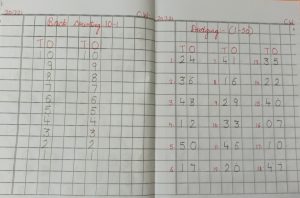 20/7/21 C.W
Back Counting 10-1
T O T O
1 0 1 0
9 9
8 8
7 7
6 6
5 5
4 4
3 3
2 2
1 1
20/7/21 C.W
(1-50)
T O T O T O
1. 2 4 7. 4 1 13. 3 5
2. 3 6 8. 1 6 14. 2 2
3. 4 8 9. 2 9 15. 4 0
4. 1 2 10. 3 3 16. 0 7
5. 5 0 11. 4 6 17. 1 0
6. 1 7 12. 2 0 18. 4 7